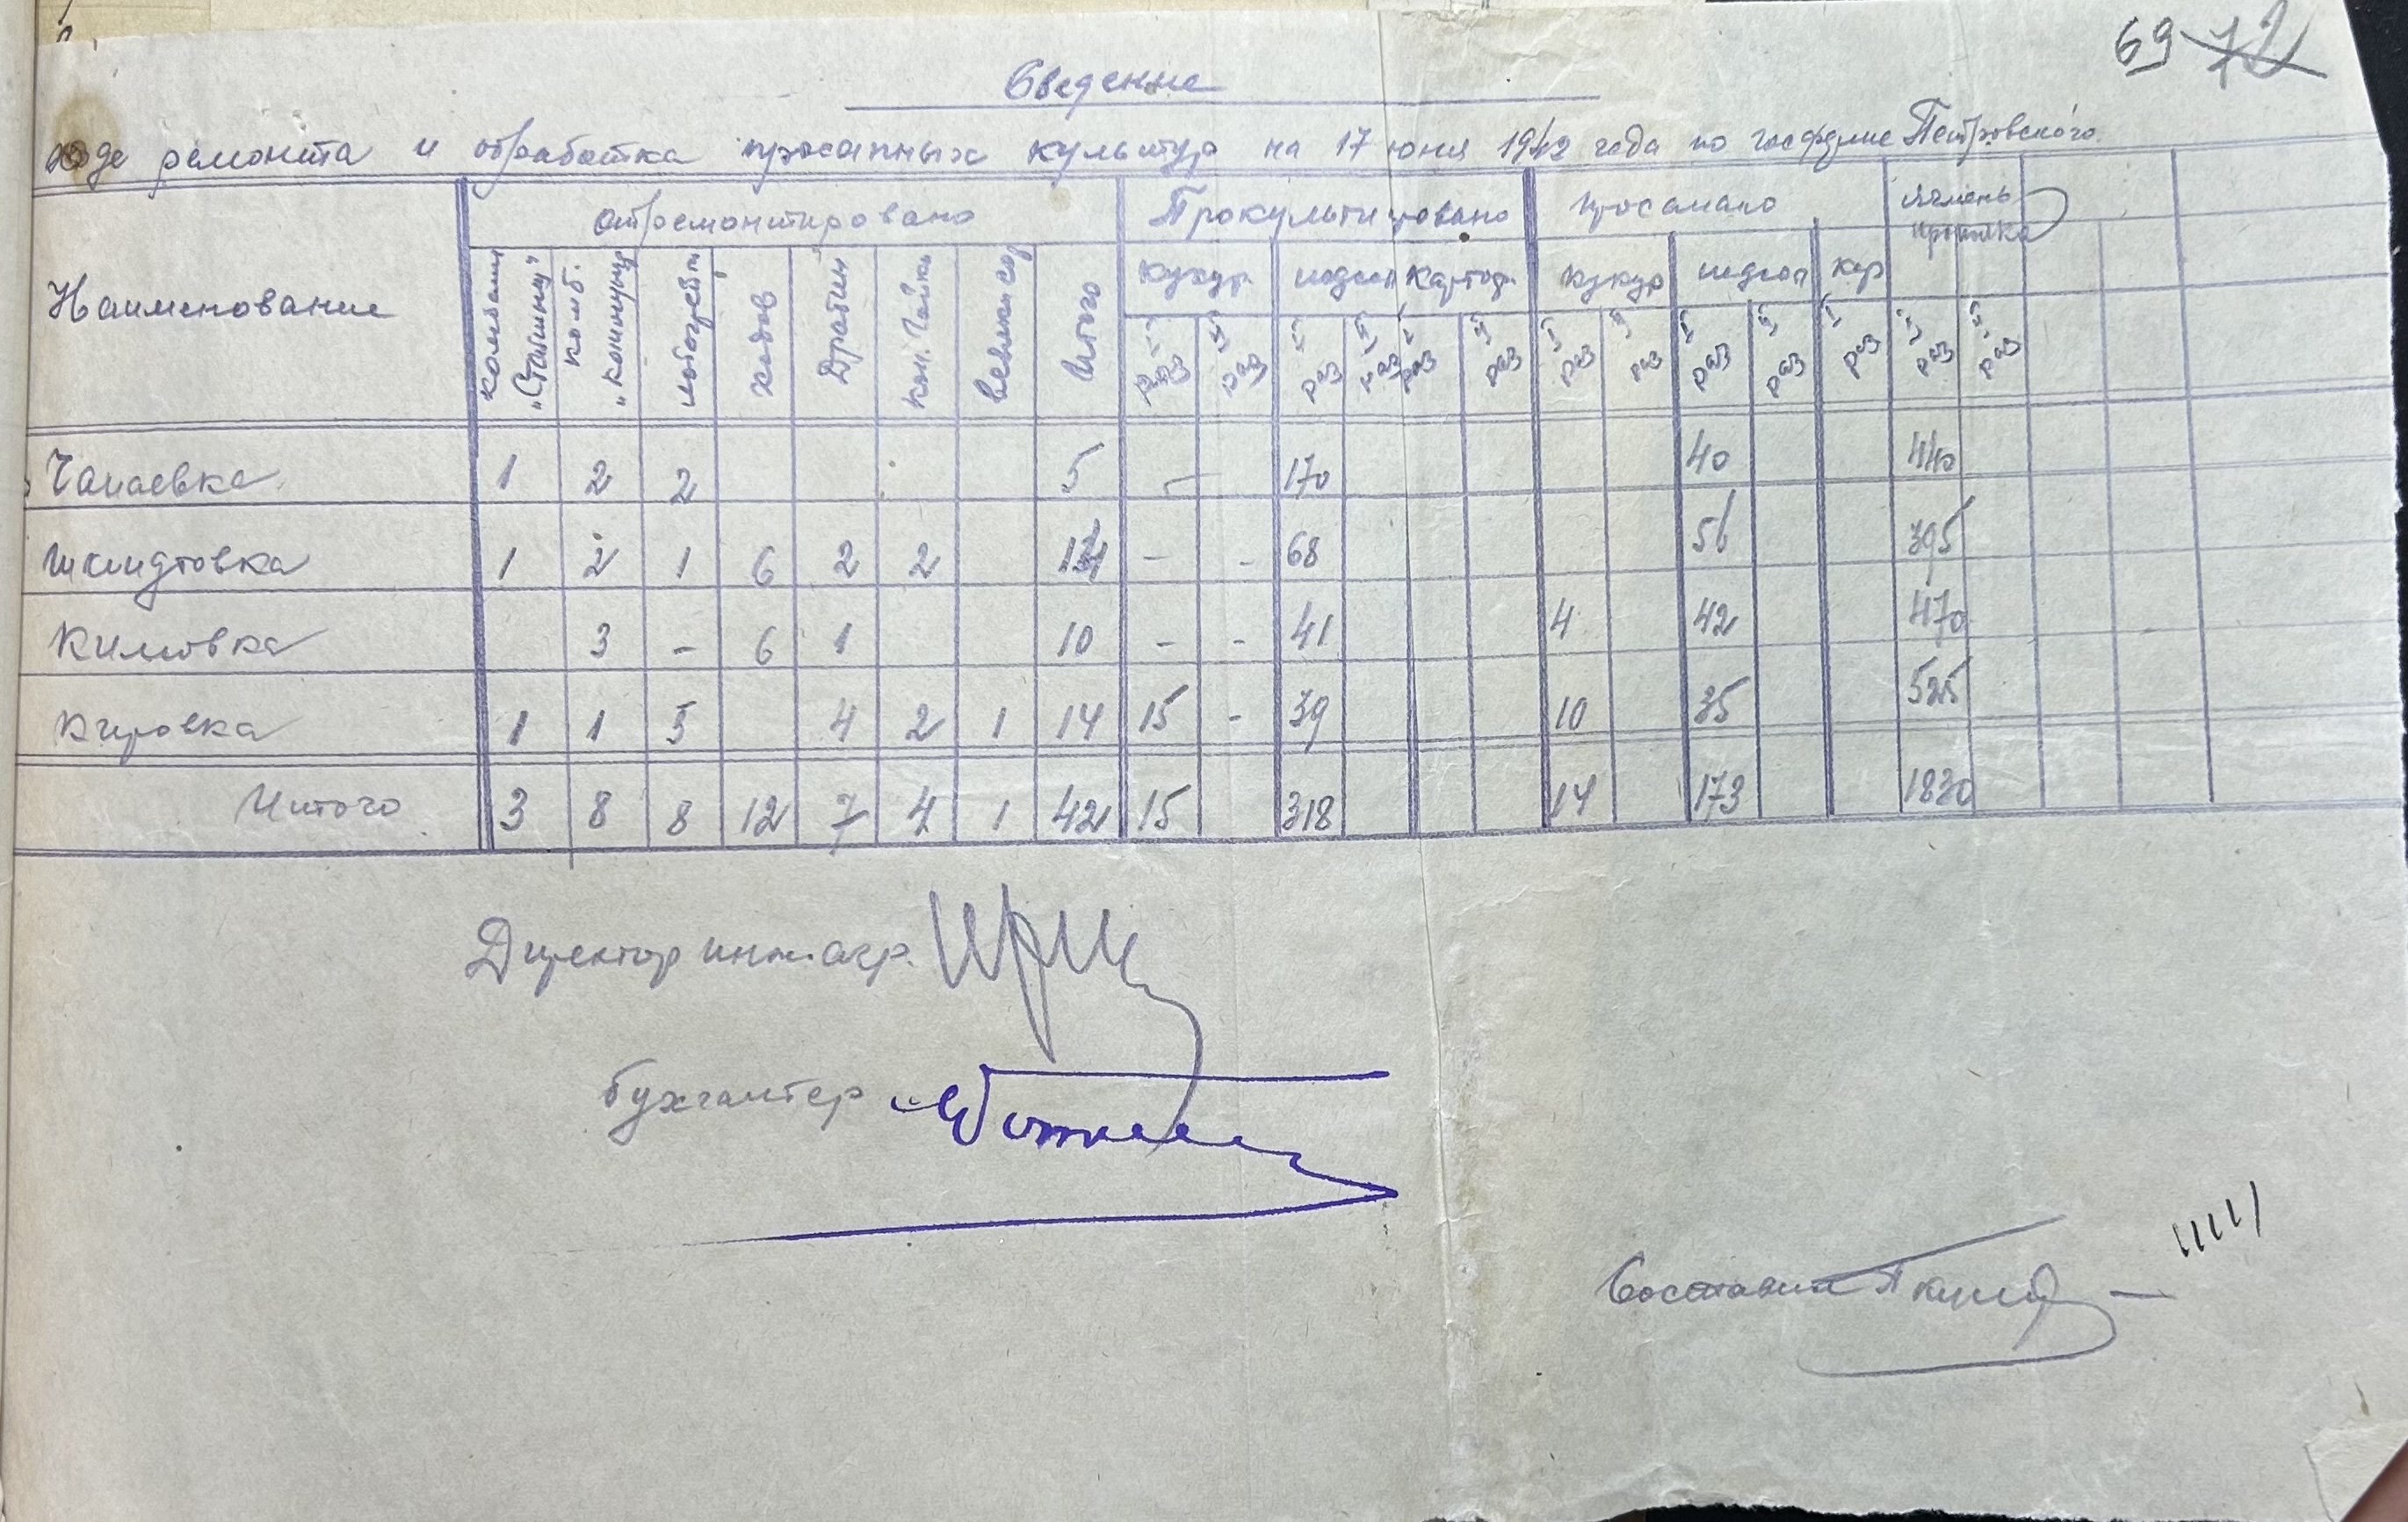 69 72
Сведение
ходе ремонта и обработка просапных культур на 17 июня 1942 года по госферме Петровского.
Наименование | Отремонтировано | Прокультивровано | Просапано | Ячмень прополка
комбаин "Сталинец" | комб. "коммунар" | | ходов | | кон. | | Итого | кукур. | подсол | картоф. | кукур | подсол | кар
I раз | II раз | I раз | II раз | I раз | II раз | I раз | II раз | I раз | II раз | I раз | I раз | II раз
Чапаевка | 1 | 2 | 2 | 5 | – | 170 | 40 | 440
Шмидтовка | 1 | 2 | 1 | 6 | 2 | 2 | 13 | – | - | 68 | 56 | 395
Кимовка | 3 | – | 6 | 1 | 10 | – | - | 41 | 4 | 42 | 470
Кировка | 1 | 1 | 5 | 4 | 2 | 1 | 14 | 15 | - | 39 | 10 | 35 | 525
Итого | 3 | 8 | 8 | 12 | 7 | 4 | 1 | 42 | 15 | 318 | 14 | 173 | 1830
Директор инж. агр.
бухгалтер
Составил